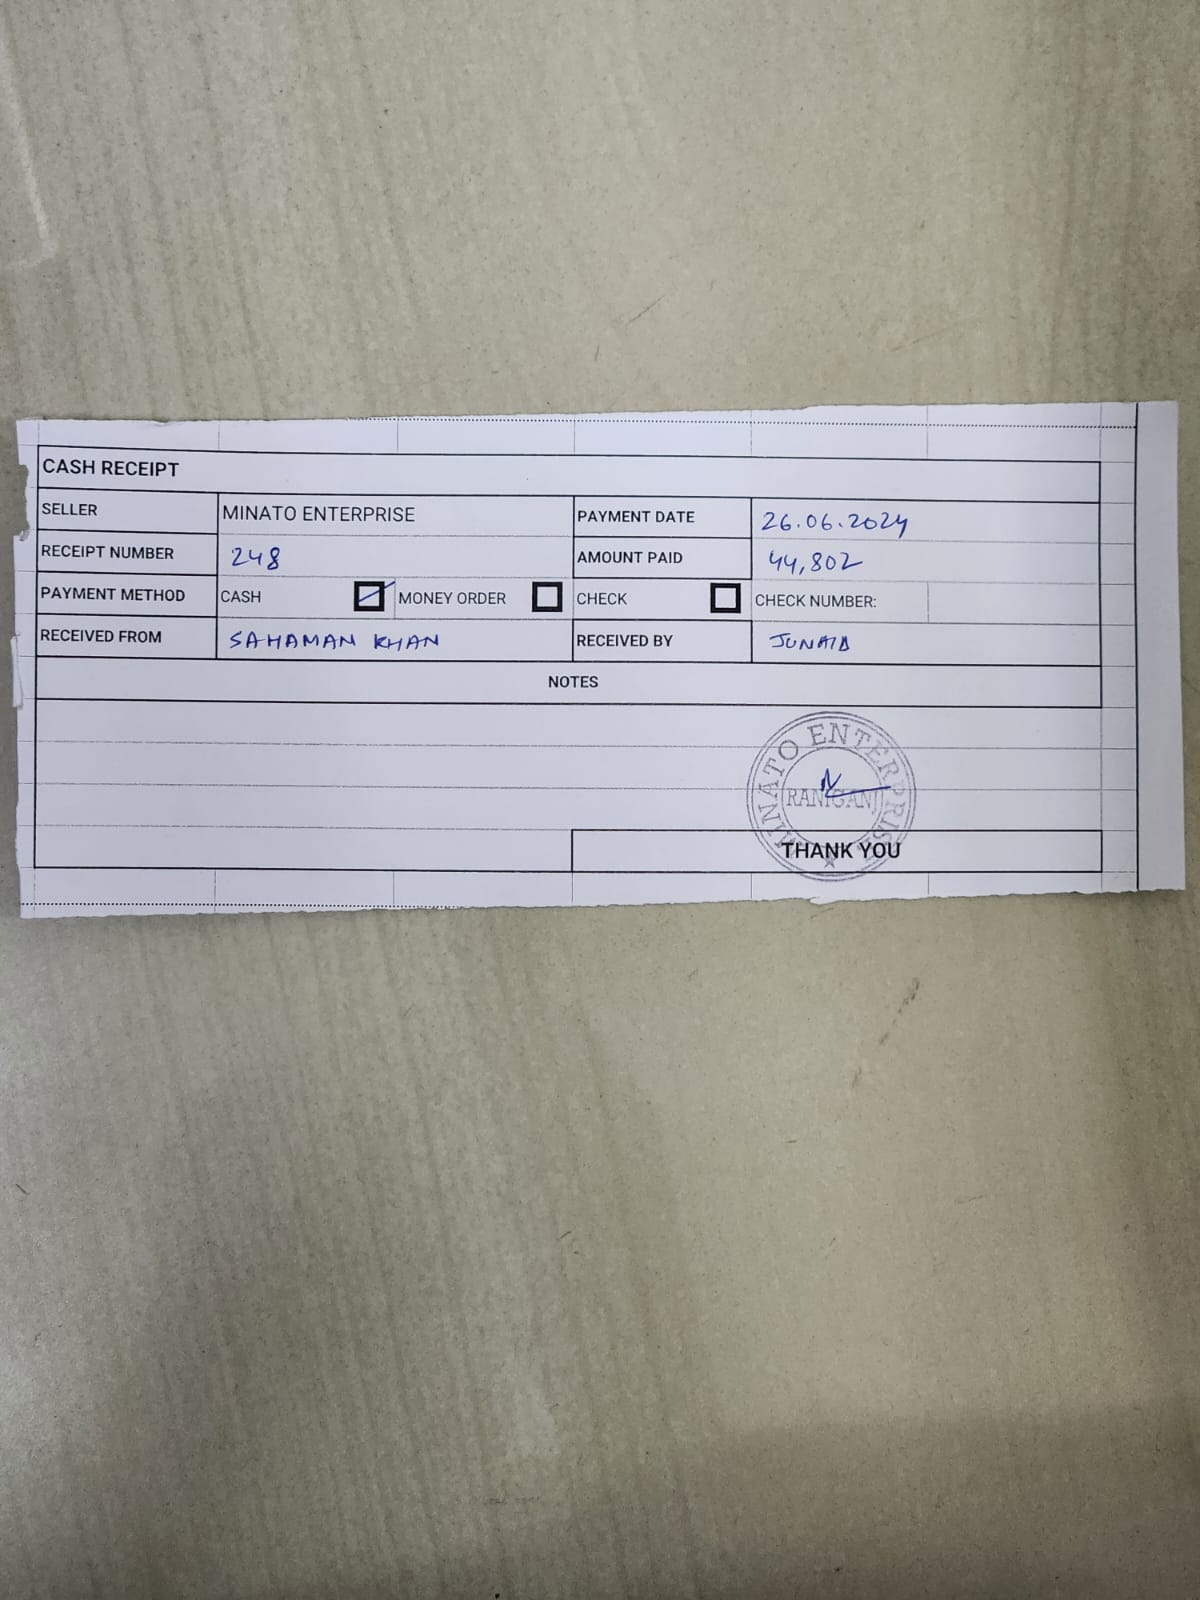 CASH RECEIPT
SELLER MINATO ENTERPRISE PAYMENT DATE 26.06.2024
RECEIPT NUMBER 248 AMOUNT PAID 44,802
PAYMENT METHOD CASH MONEY ORDER CHECK CHECK NUMBER:
RECEIVED FROM SAHAMAN KHAN RECEIVED BY JUNAID
NOTES
MINATO ENTERPRISE
RANIGANJ
THANK YOU